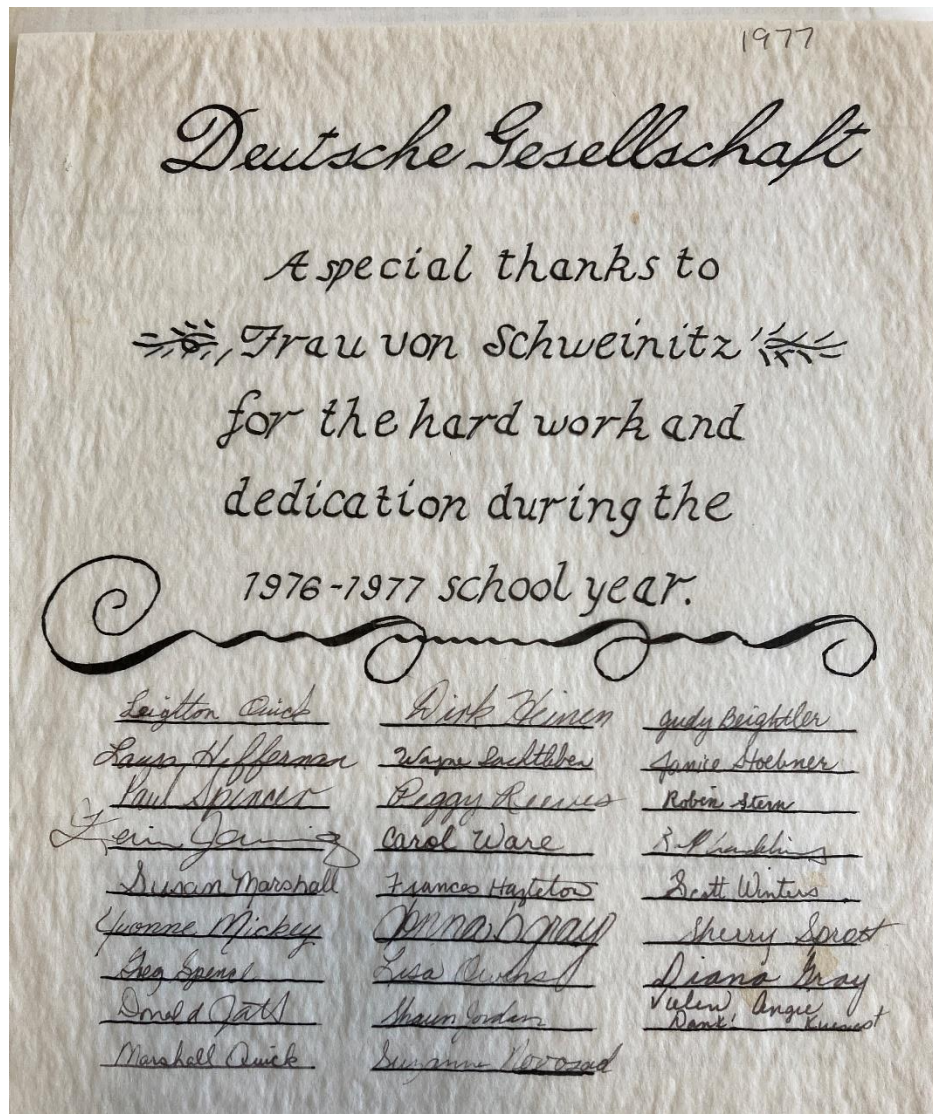 1977
Deutsche Gesellschaft
A special thanks to
Frau von Schweinitz
for the hard work and
dedication during the
1976-1977 school year.
Leigtton Quick
Laura Hefferman
Paul Spencer
Susan Marshall
Yvonne Mickey
Greg
Donald
Marshall Quick
Dirk Heinen
Wayne Sachtleben
Peggy Reeves
Carol Ware
Frances Hazleton
Donna Gray
Lisa Owens
Shaun Jordan
Suzanne Novosad
Judy Beightler
Janice Stoebner
Robin Stern
Scott Winters
Sherry Sprott
Diana Gray
Vielen Angie
Dank!